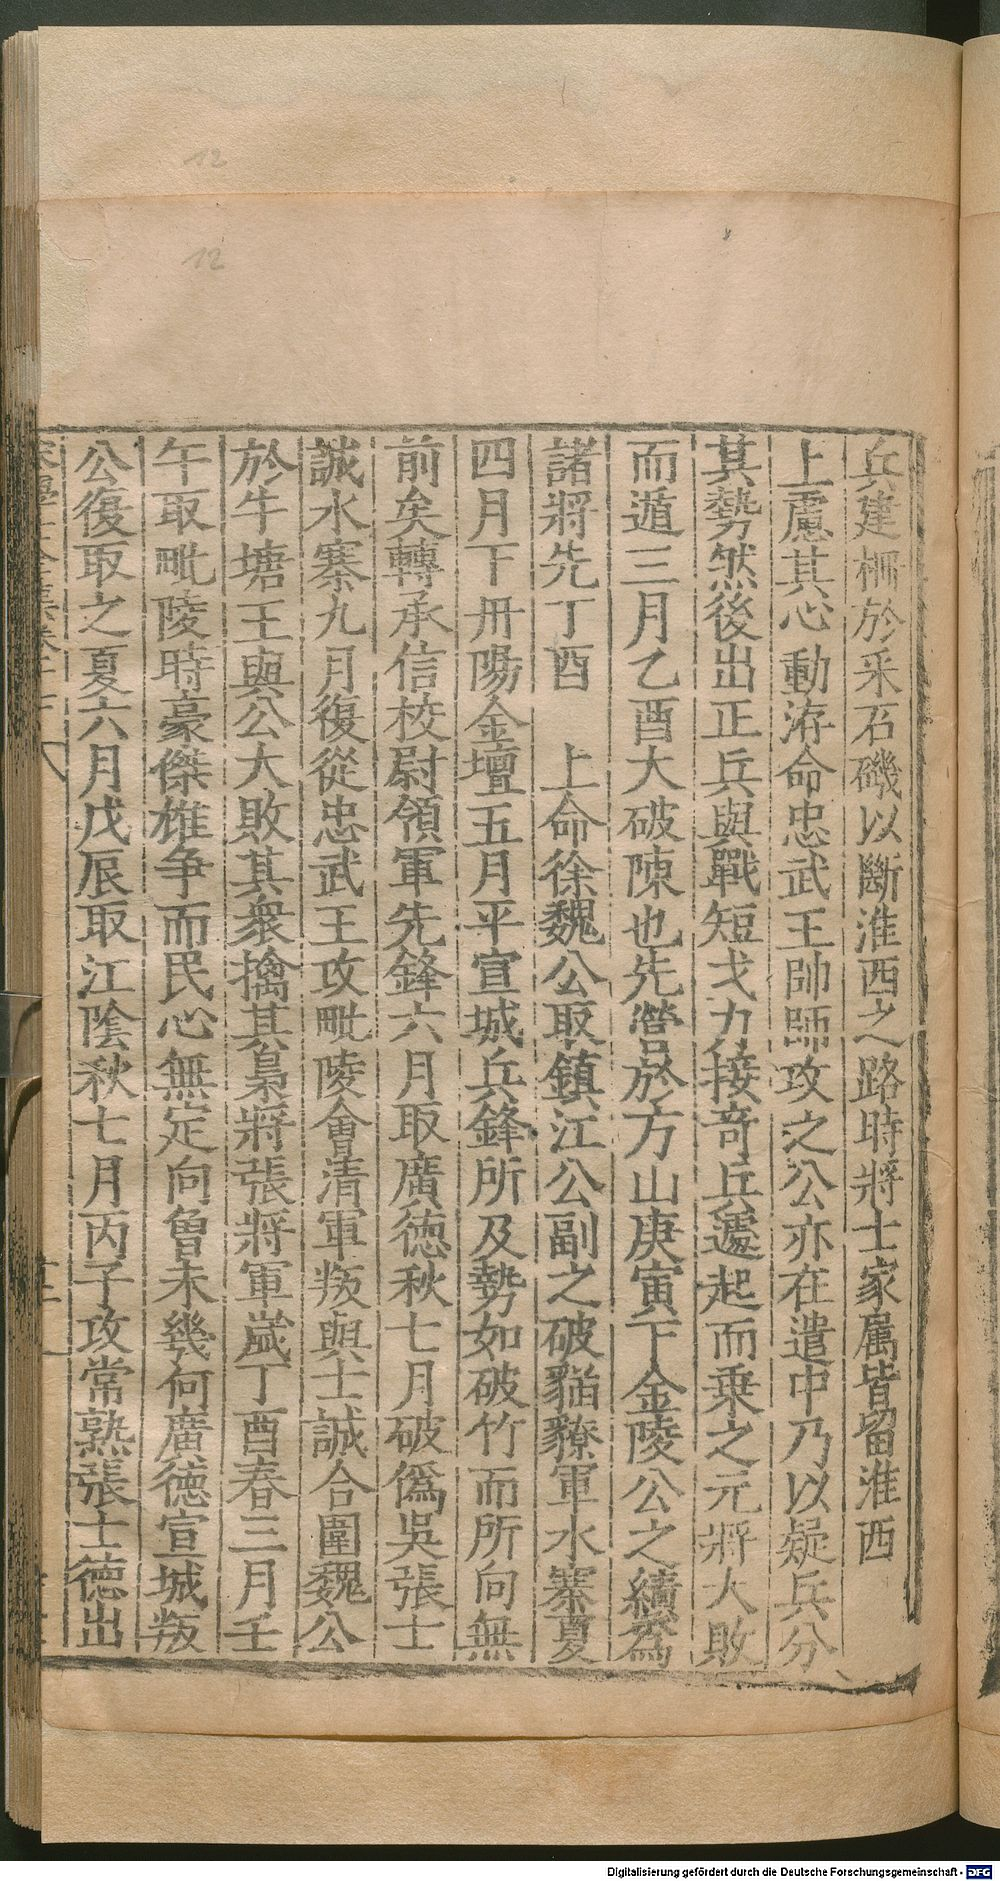 兵建柵於采石磯以斷淮西之路時將士家屬皆留淮西
上慮其心動洊命忠武王帥師攻之公亦在遣中乃以疑兵分
其勢然後出正兵與戰短戈力接竒兵遽起而乗之元將大敗
而遁三月乙酉大破陳也先營於方山庚寅下金陵公之績爲
諸將先丁酉　上命徐魏公取鎮江公副之破猫獠軍水寨夏
四月下丹陽金壇五月平宣城兵鋒所及勢如破竹而所向無
前矣轉承信校尉領軍先鋒六月取廣徳秋七月破僞吳張士
誠水寨九月復從忠武王攻毗陵會清軍叛與士誠合圍魏公
於牛塘王與公大敗其衆擒其梟將張將軍歲丁酉春三月壬
午取毗陵時豪傑雄争而民心無定向曾未幾何廣徳宣城叛
公復取之夏六月戊辰取江陰秋七月丙子攻常熟張士徳出
12
12
Digitalisierung gefördert durch die Deutsche Forschungsgemeinschaft - DFG